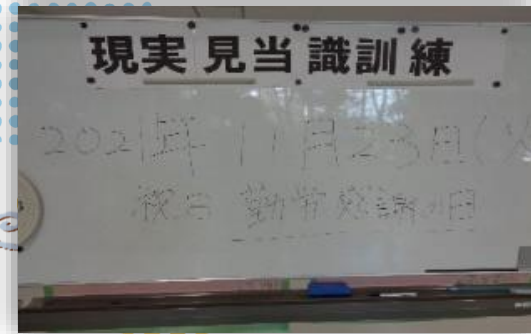 現実見当識訓練
2021年 11月23日(火
祝日 勤労感謝の日